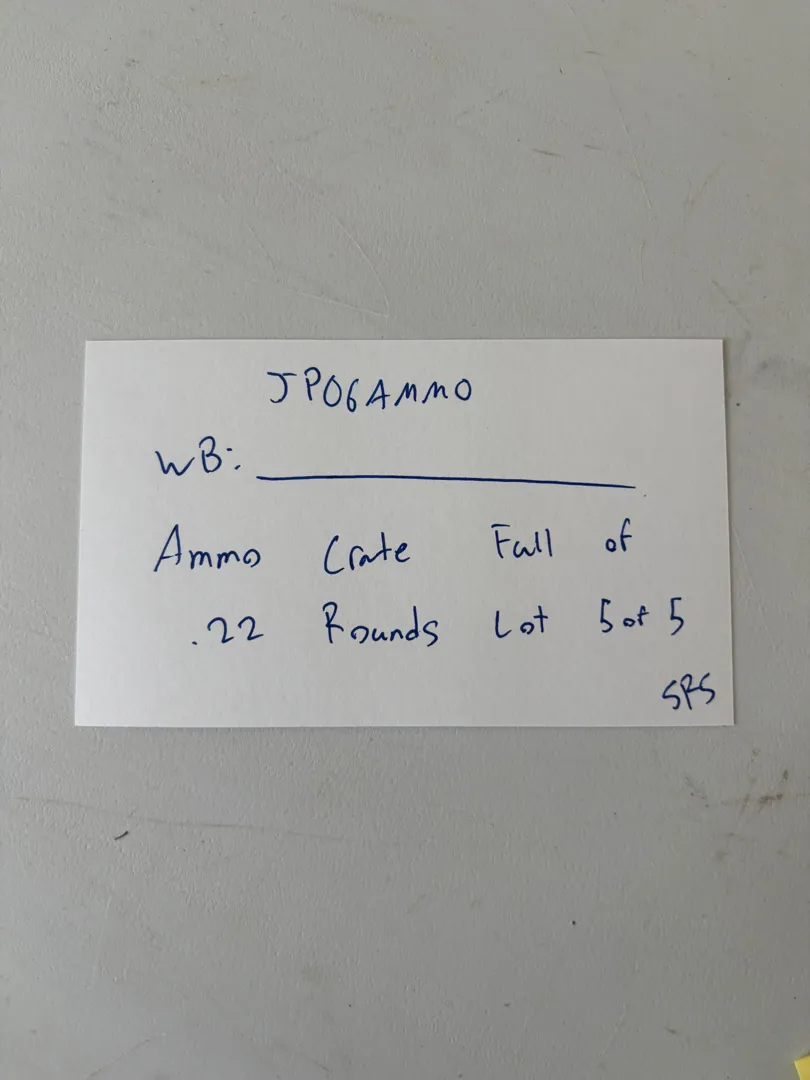 JP06AMMO
WB: 
Ammo Crate Full of
.22 Rounds Lot 5 of 5
SRS